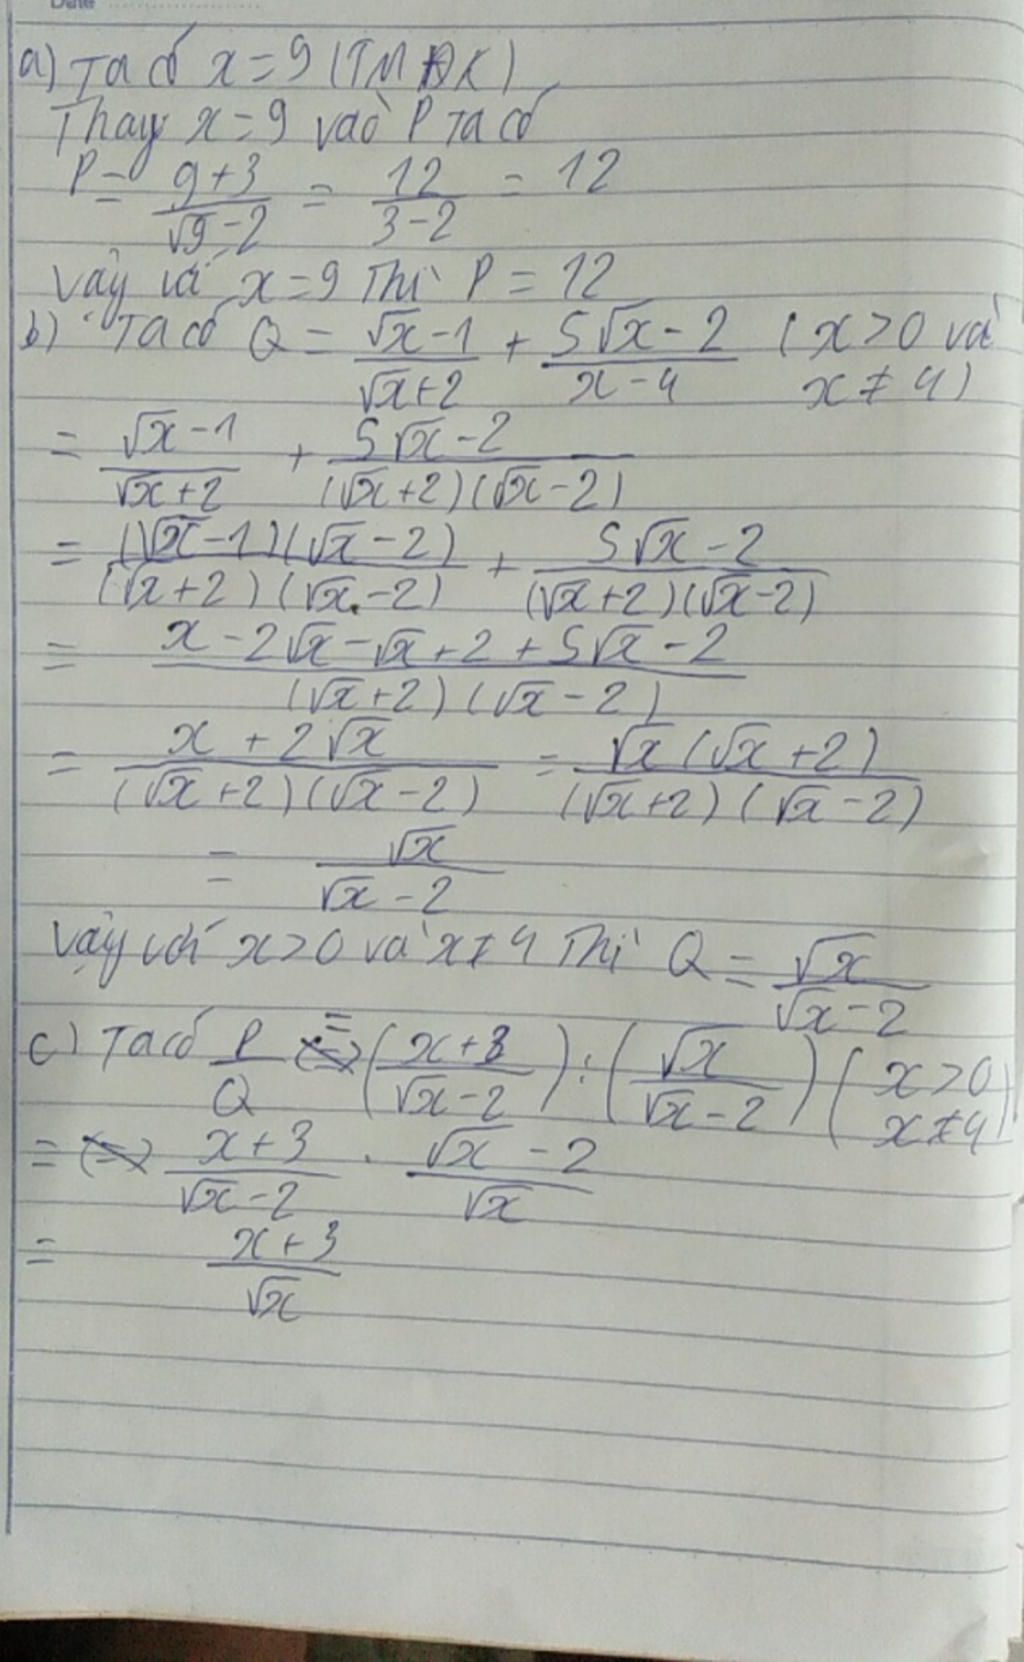 Date
a) Ta có x = 9 (TMĐK)
Thay x = 9 vào P ta có
P = (9+3)/(√9-2) = 12/(3-2) = 12
Vậy với x = 9 Thì P = 12
b) Ta có Q = (√x-1)/(√x+2) + (5√x-2)/(x-4) (x>0 và x≠4)
= (√x-1)/(√x+2) + (5√x-2)/((√x+2)(√x-2))
= ((√x-1)(√x-2))/((√x+2)(√x-2)) + (5√x-2)/((√x+2)(√x-2))
= (x-2√x-√x+2+5√x-2)/((√x+2)(√x-2))
= (x+2√x)/((√x+2)(√x-2)) = (√x(√x+2))/((√x+2)(√x-2))
= √x/(√x-2)
Vậy với x>0 và x≠4 Thì Q = √x/(√x-2)
c) Ta có P/Q = ((x+3)/(√x-2)) : (√x/(√x-2)) (x>0 x≠4)
= (x+3)/(√x-2) . (√x-2)/√x
= (x+3)/√x